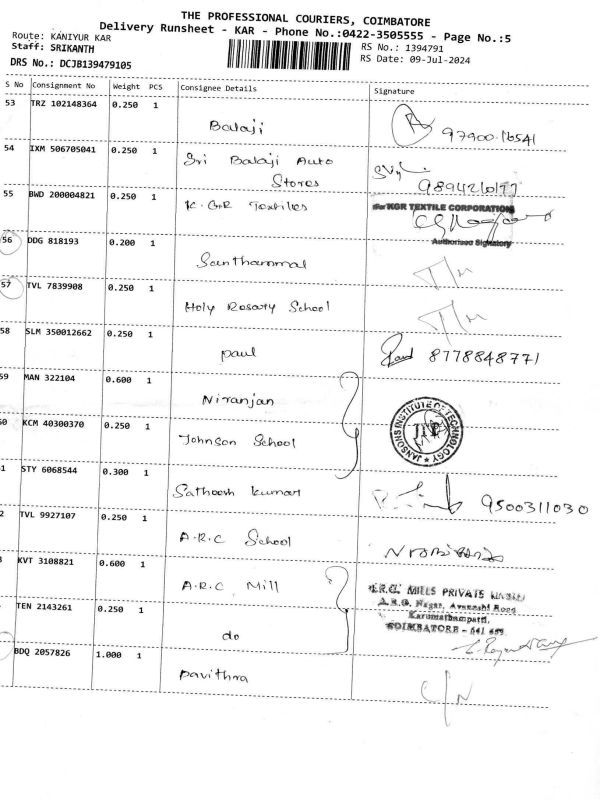 THE PROFESSIONAL COURIERS, COIMBATORE
Delivery Runsheet - KAR - Phone No.:0422-3505555 - Page No.:5
Route: KANIYUR KAR
RS No.: 1394791
Staff: SRIKANTH
RS Date: 09-Jul-2024
DRS No.: DCJB139479105
S No Consignment No Weight PCS Consignee Details Signature
53 TRZ 102148364 0.250 1
Balaji 97900.16541
54 IXM 506705041 0.250 1
Sri Balaji Auto
Stores 9894216177
55 BWD 200004821 0.250 1
K.G.R Textiles
For KGR TEXTILE CORPORATION
Authorised Signatory
56 DDG 818193 0.200 1
Santhammal
57 TVL 7839908 0.250 1
Holy Rosary School
58 SLM 350012662 0.250 1
paul Paul 8778848771
59 MAN 322104 0.600 1
Niranjan
JANSONS INSTITUTE OF TECHNOLOGY
JIT
0 KCM 40300370 0.250 1
Johnson School
1 STY 6068544 0.300 1
Sathish Kumar 9500311030
2 TVL 9927107 0.250 1
A.R.C School
KVT 3108821 0.600 1
A.R.C, Mill
MILLS PRIVATE
Nagar, Avanashi Road
Karumathampatti,
COIMBATORE - 641 659
TEN 2143261 0.250 1
do
BDQ 2057826 1.000 1
pavithra